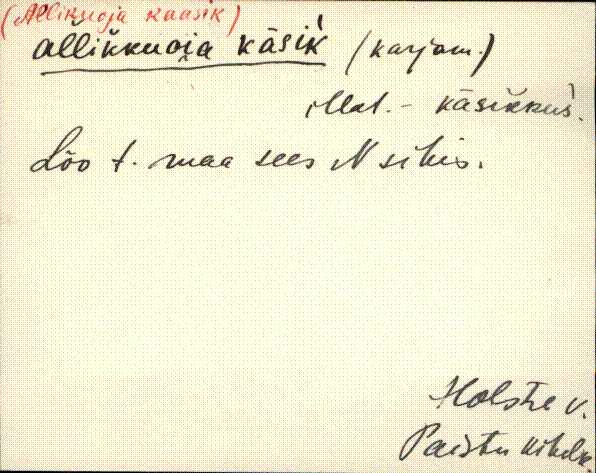 (Allikuoja kaasik)
allikkuoja kāsik̀ (karjam.)
illat. - kāsikkus̀.
Lõo t. maa sees N sihis.
Holstre v.
Paistu kihelk.